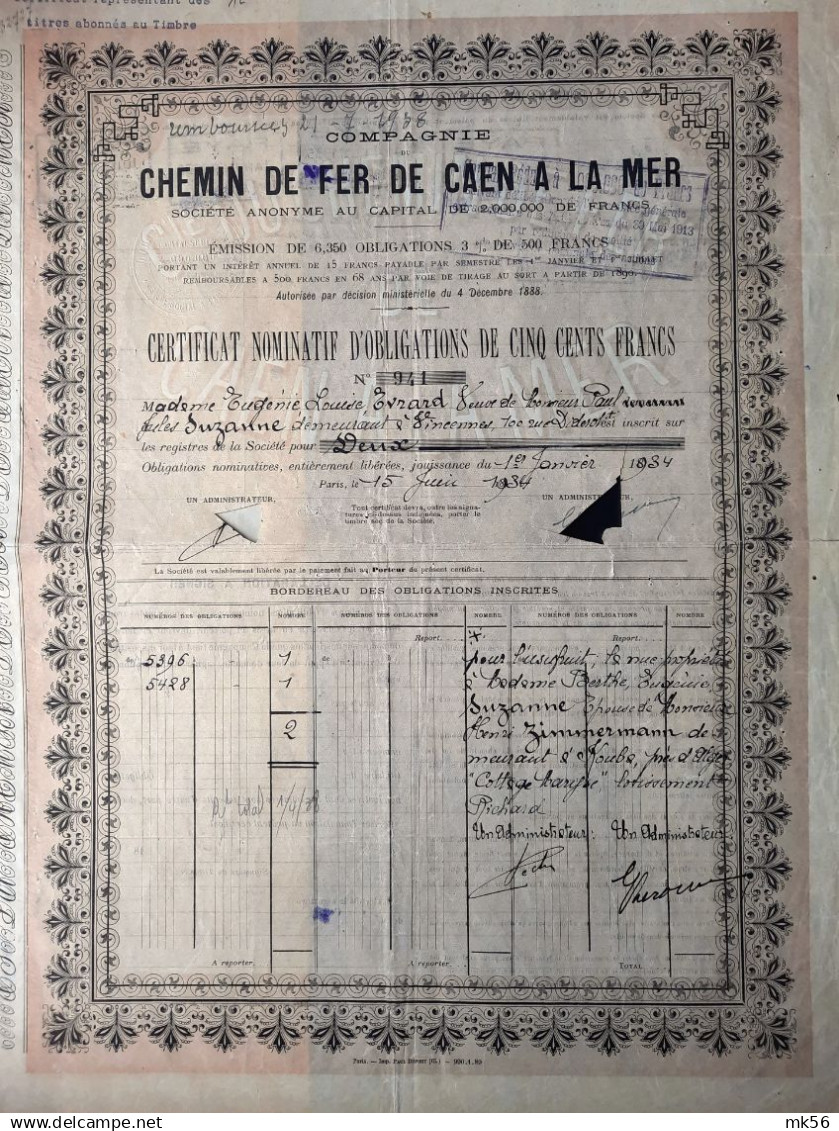 titres abonnés au Timbre
remboursées 21-7-1938
COMPAGNIE
DU
CHEMIN DE FER DE CAEN A LA MER
SOCIÉTÉ ANONYME AU CAPITAL DE 2,000,000 DE FRANCS
ÉMISSION DE 6,350 OBLIGATIONS 3 % DE 500 FRANCS
PORTANT UN INTÉRÊT ANNUEL DE 15 FRANCS PAYABLE PAR SEMESTRE LES 1er JANVIER ET 1er JUILLET
REMBOURSABLES A 500 FRANCS EN 68 ANS PAR VOIE DE TIRAGE AU SORT A PARTIR DE 1890.
Autorisée par décision ministérielle du 4 Décembre 1888.
CERTIFICAT NOMINATIF D'OBLIGATIONS DE CINQ CENTS FRANCS
N° 941
Madame Eugénie Louise Evrard Veuve de Monsieur Paul
Jules Suzanne demeurant à Vincennes, 100 rue est inscrit sur
les registres de la Société pour Deux
Obligations nominatives, entièrement libérées, jouissance du 1er Janvier 1934
Paris, le 15 Juin 1934
UN ADMINISTRATEUR, UN ADMINISTRATEUR,
Tout certificat devra, outre les signa-
tures ci-dessus indiquées, porter le
timbre sec de la Société.
La Société est valablement libérée par le paiement fait au Porteur du présent certificat.
BORDEREAU DES OBLIGATIONS INSCRITES
NUMÉROS DES OBLIGATIONS NOMBRE NUMÉROS DES OBLIGATIONS NOMBRE NUMÉROS DES OBLIGATIONS NOMBRE
Report. Report.
5396 - 1
5428 - 1
2
pour l'usufruit, la nue propriété
à Madame Berthe, Eugénie
Suzanne Epouse de Monsieur
Henri Zimmermann de-
meurant à Kouba, près d'Alger
"Cottage " lotissement
Richard
Un Administrateur: Un Administrateur
A reporter. A reporter. TOTAL
mk56